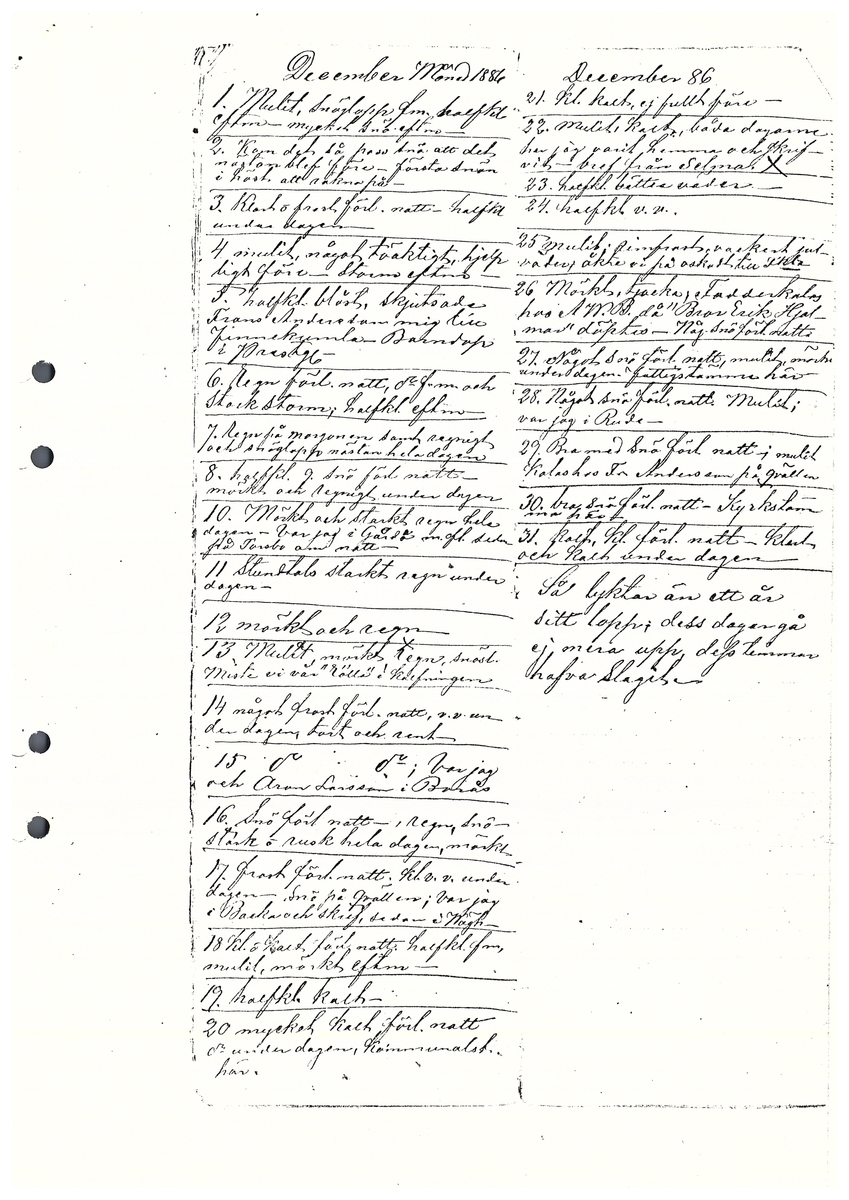 December Månad 1886
1. Mulit, snöglopp fm. halfkl.
eftm - mycket snö eftm -
2. Kom det så pass snö att det
nästan blef före - första snön
i höst att räkna på -
3. Klart o frost förl. natt - halfkl
under dagen
4 mulit, något töaktigt, hjelp
ligt före - Storm eftm -
5. halfkl. blåst, skjutsade
Frans Andersson mig till
Finnekumla - Barndop
i
6. Regn förl. natt, do f.m. och
Stark storm; halfkl. eftm -
7. Regn på morgonen samt regnigt
och snöglopp nästan hela dagen
8. halfkl. 9. snö förl natt -
mörkt och regnigt under dagen
10. Mörkt och starkt regn hela
dagen - Var jag i sedan
från Torsbo om natt -
11 Stundtals starkt regn under
dagen -
12 mörkt och regn
13 Mulet, mörkt, regn, snöst.
Miste vi vår i kalfningen
14 något frost förl. natt, v.v. un-
der dagen, tort och rent
15 do do; Var jag
och Aron Larsson i Borås
16. Snö förl natt -, regn, snö-
stänk o rusk hela dagen, mörkt
17. frost förl. natt. kl. v.v. under
dagen - snö på qvällen; Var jag
i Backa och skref, sedan i
18 kl. o kalt förl. natt. halfkl. fm,
mulit, mörkt eftm -
19. halfkl. kalt -
20 mycket kalt förl. natt
do under dagen, Kommunalst.
här.
December 86
21. kl. kalt, ej fullt före -
22. mulit, kalt, båda dagarne
har jag varit hemma och skrif-
vit - bref från Selma X
23. halfkl. bättre väder -
24. halfkl v.v.
25 mulit, rimfrost, vackert jul
väder, åkte vi på till
26 Mörkt, tjocka, Fadderkalas
hos A.W.B. då "Bror Erik Hjal-
mar" döptes - Någ. snö förl. natt
27. Något snö förl. natt, mulit, mörkt
under dagen fattigstämma här
28. Något snö förl. natt. Mulit;
var jag i Rude -
29. Bra med snö förl natt -; mulit
Kalas hos Fr Andersson på qvällen
30. bra snö förl. natt - Kyrkstäm
ma här
31. kalt, kl. förl. natt - klart
och kalt under dagen
Så lyktar än ett år
sitt lopp; dess dagar gå
ej mera upp, dess timmar
hafva slagit. -